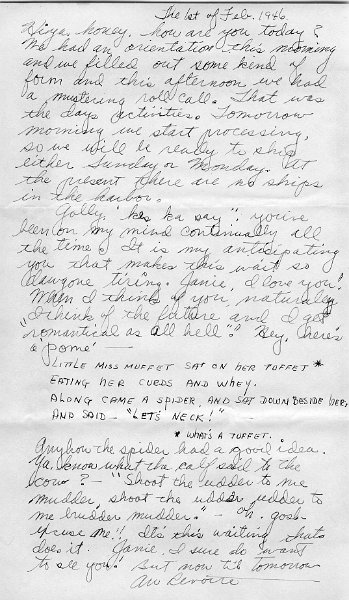 The 1st of Feb. 1946
Hiya, honey, how are you today?
We had an orientation this morning
and we filled out some kind of
form and this afternoon we had
a mustering roll call. That was
the days activities. Tomorrow
morning we start processing,
so we will be ready to ship
either Sunday or Monday. At
the present there are no ships
in the harbor.
Golly, "kes ka say", you've
been on my mind continually all
the time. It is my anticipating
you that makes this wait so
dawgone tiring. Janie, I love you!
When I think of you, naturally
I think of the future and I get
"romantical as all hell"! Hey, here's
a "pome" —
LITTLE MISS MUFFET SAT ON HER TUFFET *
EATING HER CURDS AND WHEY.
ALONG CAME A SPIDER, AND SAT DOWN BESIDE HER,
AND SAID – "LET'S NECK!"
* WHAT'S A TUFFET.
Anyhow the spider had a good idea.
Ya know what tha calf said to the
cow? – "Shoot the udder to me
mudder, shoot the udder udder to
me brudder mudder." – Oh, gosh
excuse me!! It's this waiting thats
does it. Janie, I sure do want
to see you! But now til tomorrow
Au Revoire